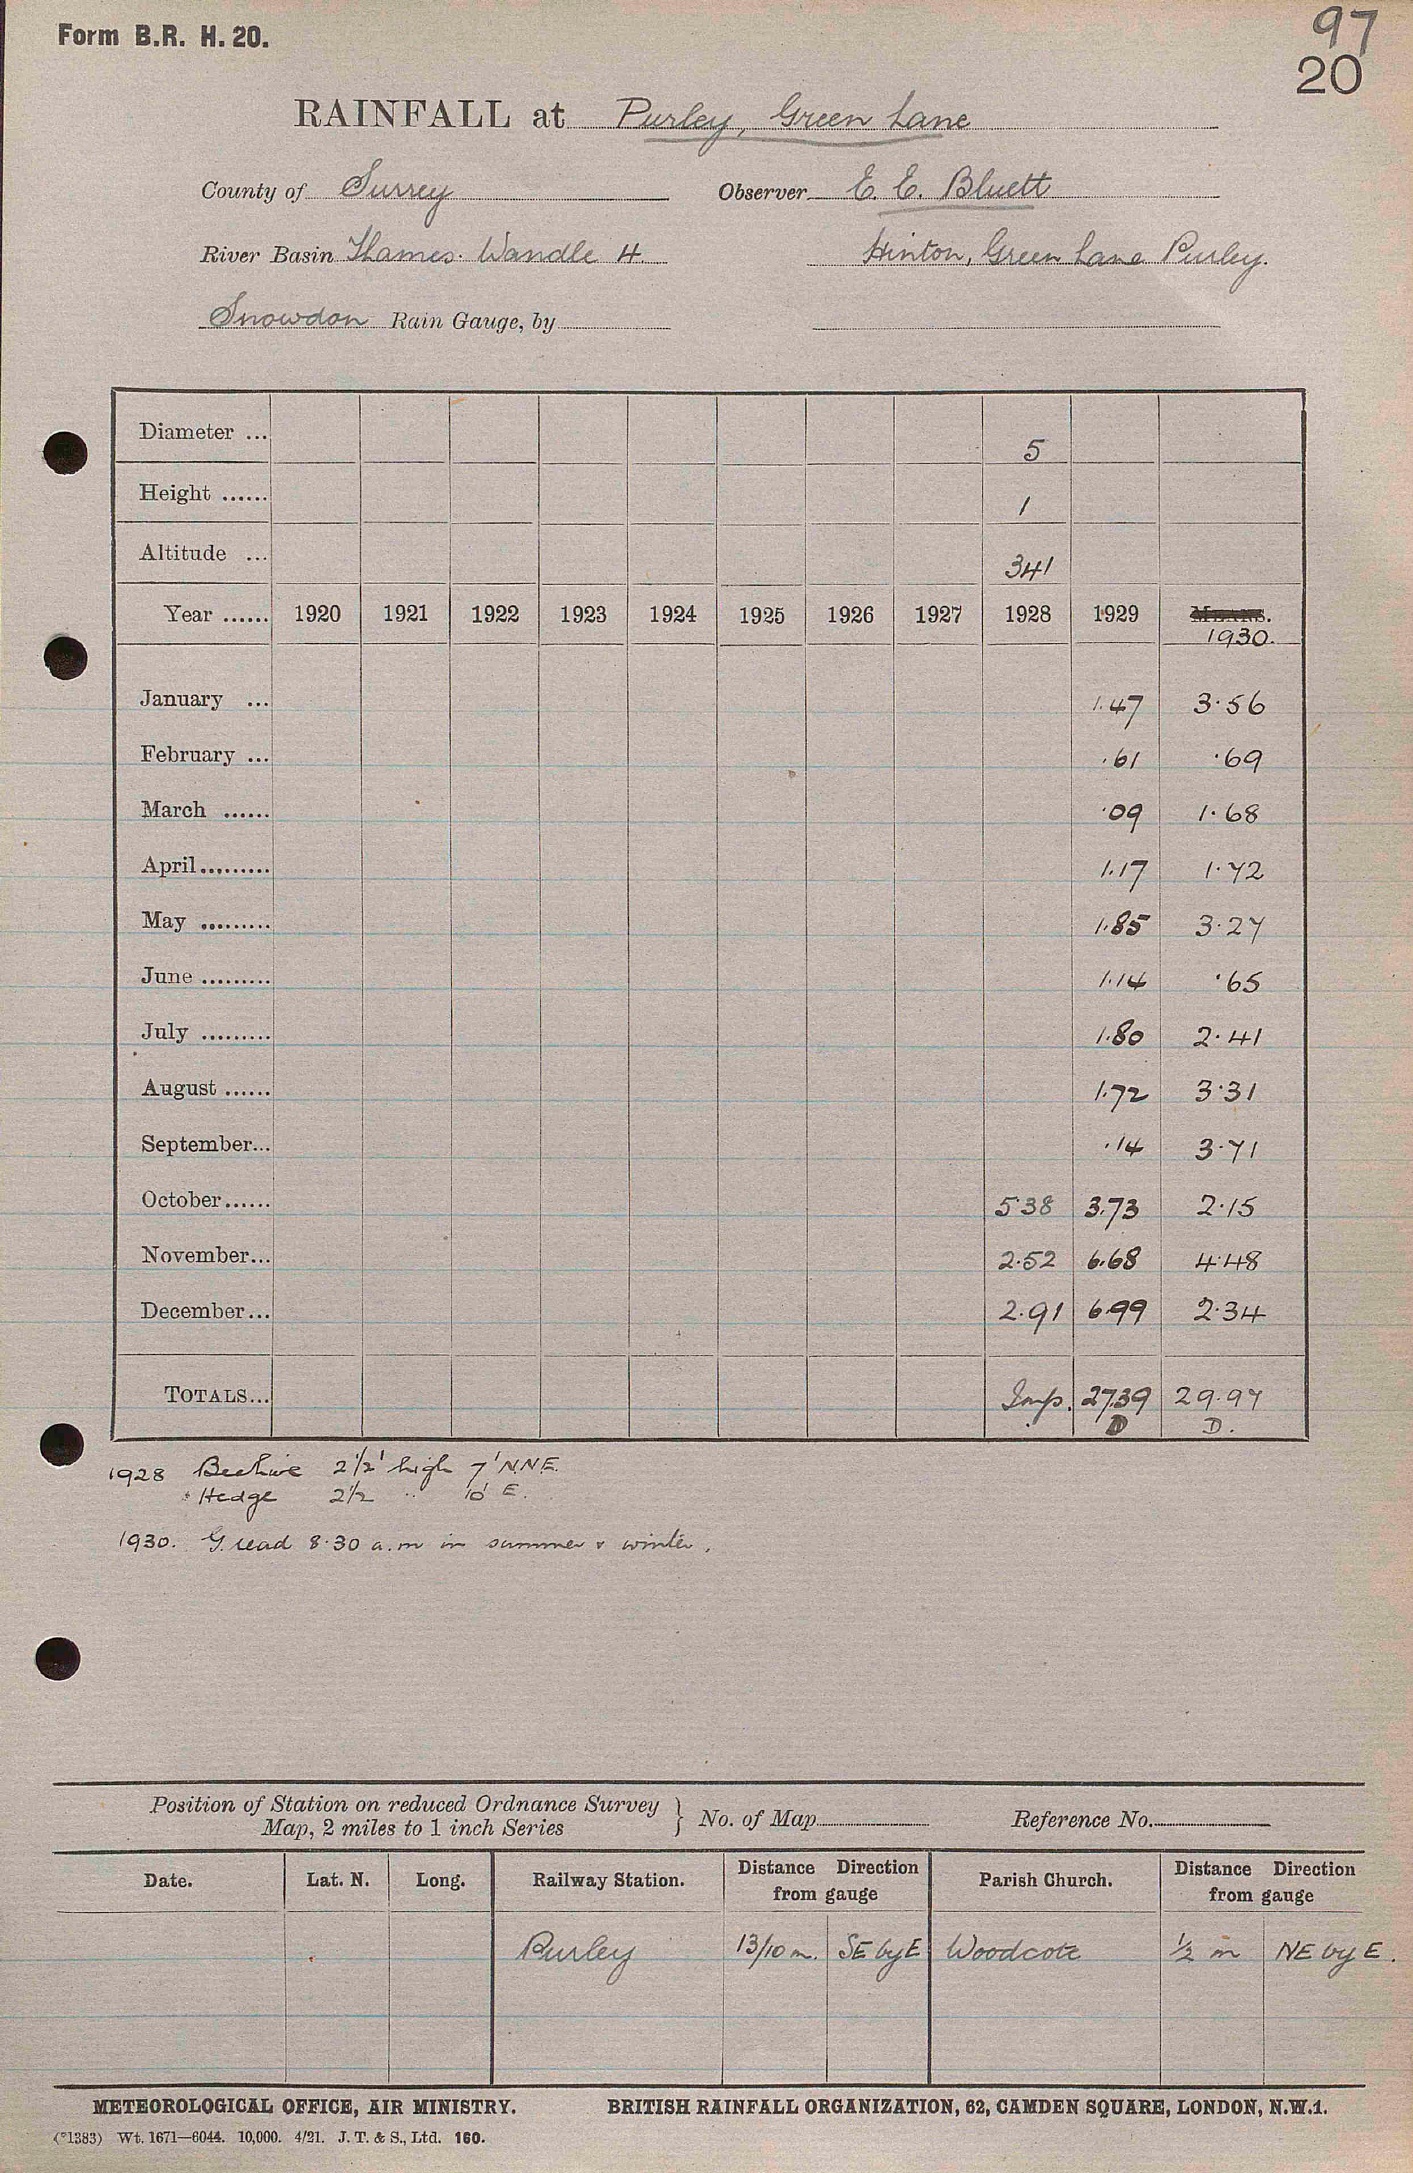 Form B.R. H. 20.
97
20
RAINFALL at Purley, Green Lane
County of Surrey Observer E. E. Bluett
River Basin Thames. Wandle 4. Hinton, Green Lane Purley.
Snowdon Rain Gauge, by
Diameter ... 5
Height ...... 1
Altitude ... 341
Year ...... 1920 1921 1922 1923 1924 1925 1926 1927 1928 1929 MEANS.
1930.
January ... 1.47 3.56
February ... .61 .69
March ...... .09 1.68
April......... 1.17 1.72
May ......... 1.85 3.27
June ......... 1.14 .65
July ......... 1.80 2.41
August ...... 1.72 3.31
September... .14 3.71
October...... 5.38 3.73 2.15
November... 2.52 6.68 4.48
December... 2.91 6.99 2.34
TOTALS... Imp. 27.39 29.97
D D.
1928 Beehive 2 1/2' high 7' N.N.E.
Hedge 2 1/2 " 10' E.
1930. G. read 8.30 a.m in summer & winter.
Position of Station on reduced Ordnance Survey
Map, 2 miles to 1 inch Series } No. of Map Reference No.
Date. Lat. N. Long. Railway Station. Distance Direction from gauge Parish Church. Distance Direction from gauge
Purley 13/10 m. SE by E Woodcote 1/2 m NE by E.
METEOROLOGICAL OFFICE, AIR MINISTRY. BRITISH RAINFALL ORGANIZATION, 62, CAMDEN SQUARE, LONDON, N.W.1.
(*1383) Wt. 1671—6044. 10,000. 4/21. J. T. & S., Ltd. 160.